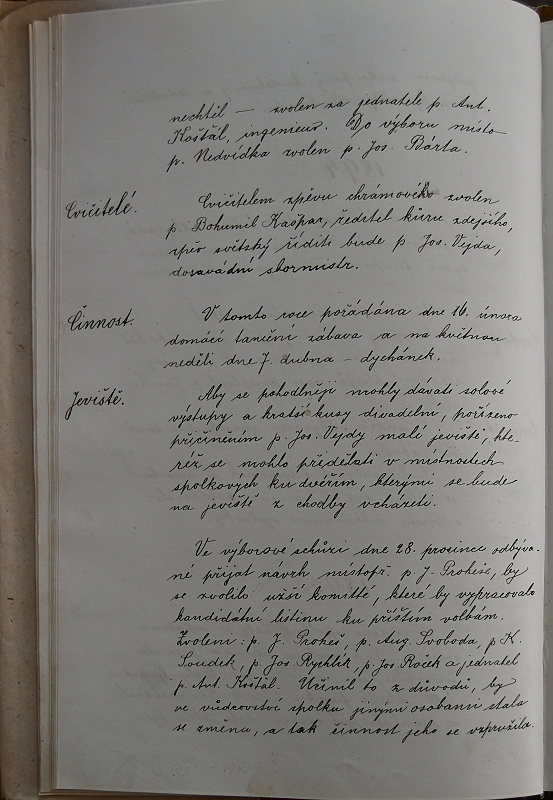 nechtěl — zvolen za jednatele p. Ant.
Košťál, ingenieur. Do výboru místo
p. Nedvídka zvolen p. Jos. Bárta.
Cvičitelé.
Cvičitelem zpěvu chrámového zvolen
p. Bohumil Kašpar, ředitel kůru zdejšího,
zpěv světský říditi bude p. Jos. Vejda,
dosavádní sbormistr.
Činnost.
V tomto roce pořádána dne 16. února
domácí taneční zábava a na květnou
neděli dne 7. dubna – dýchánek.
Jeviště.
Aby se pohodlněji mohly dávati solové
výstupy a kratší kusy divadelní, pořízeno
přičiněním p. Jos. Vejdy malé jeviště, kte-
réž se mohlo přidělati v místnostech
spolkových ku dveřím, kterými se bude
na jeviště z chodby vcházeti.
Ve výborové schůzi dne 28. prosince odbýva-
né přijat návrh místopř. p. J. Prokeše, by
se zvolilo užší komitté, které by vypracovalo
kandidátní listinu ku příštím volbám.
Zvoleni: p. J. Prokeš, p. Aug. Svoboda, p. K.
Soudek, p. Jos Rychlík, p. Jos Roček a jednatel
p. Ant. Košťál. Učinil to z důvodů, by
ve vůdcovství spolku jinými osobami stala
se změna, a tak činnost jeho se vzpružila.